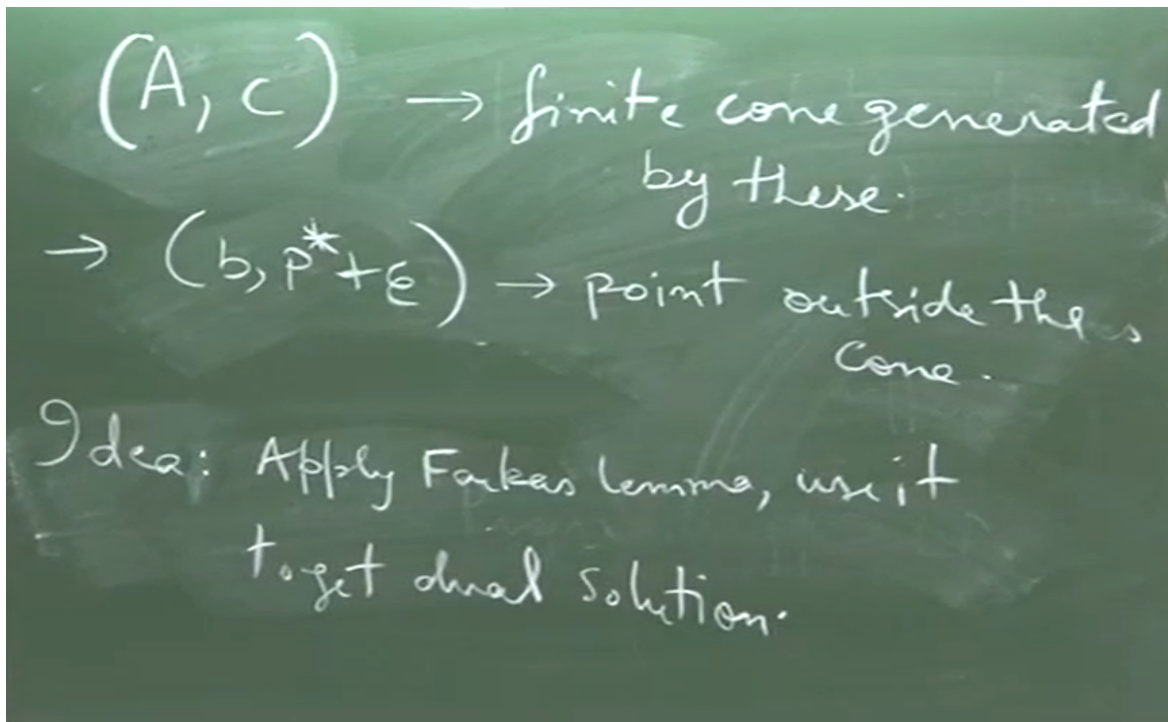 (A, c) → finite cone generated
by these.
→ (b, p*+ε) → point outside the
cone.
Idea: Apply Farkas lemma, use it
to get dual solution.